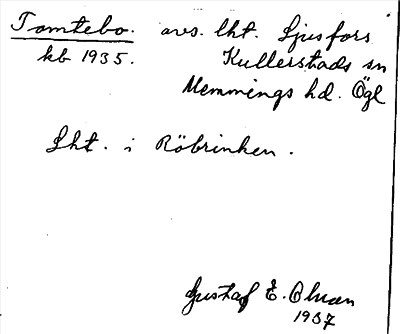 Tomtebo. avs. lht. Ljusfors
kb 1935. Kullerstads sn
Memmings hd. Ögl
Lht. i Röbrinken.
Gustaf E. Olsson
1937